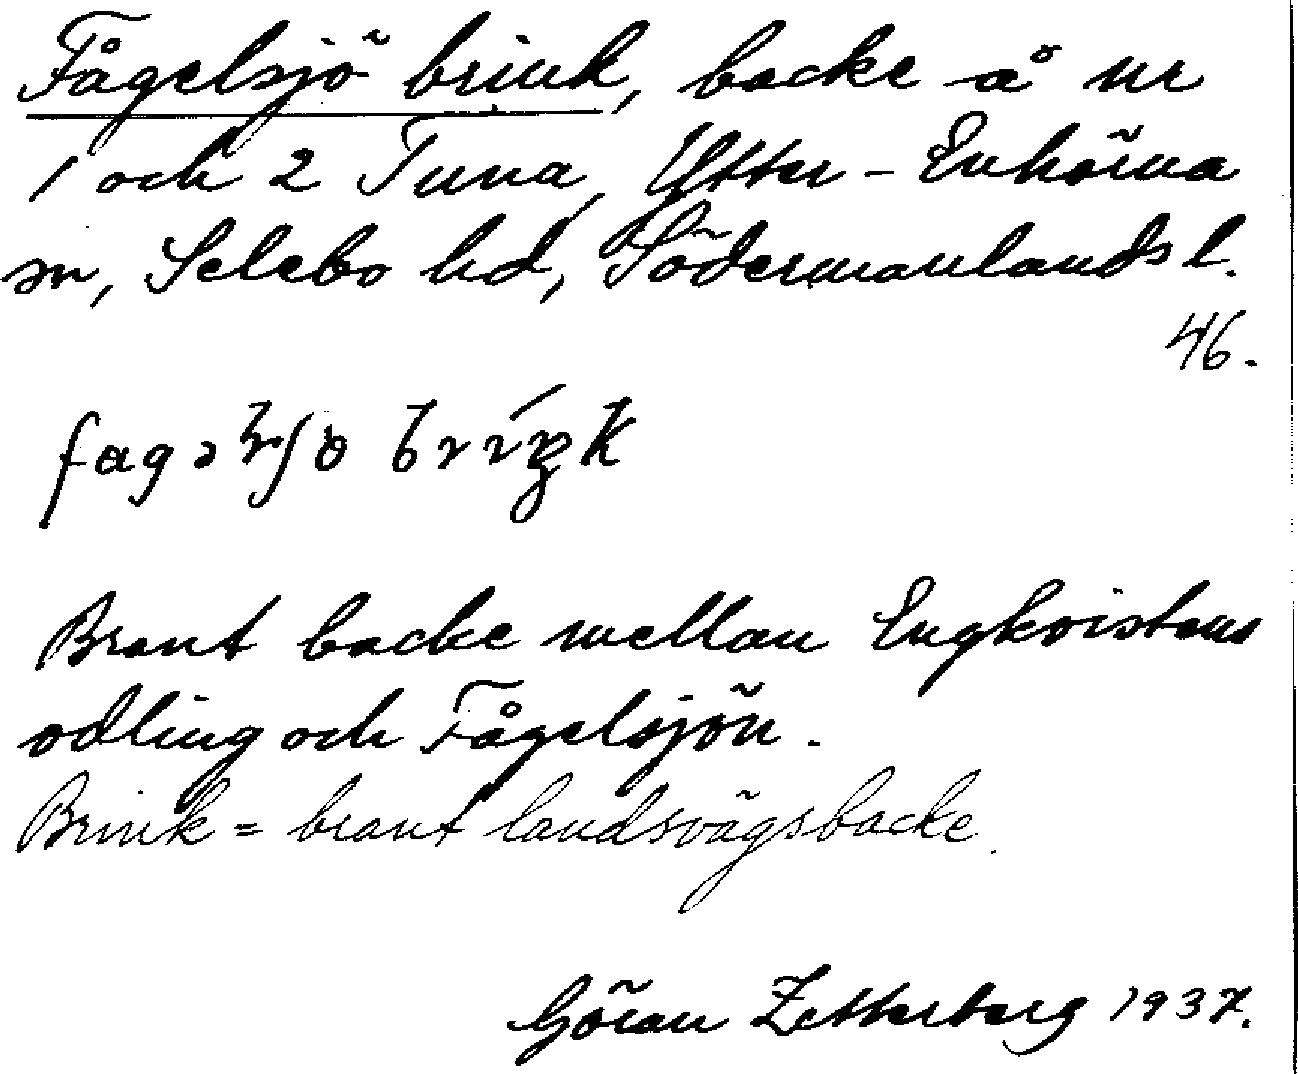 Fågelsjö brink, backe å nr
1 och 2 Tuna, Ytter-Enhörna
sn, Selebo hd, Södermanlands l.
46.
Brant backe mellan Engkvistens
odling och Fågelsjön.
Brink = brant landsvägsbacke.
Göran Zetterberg 1937.